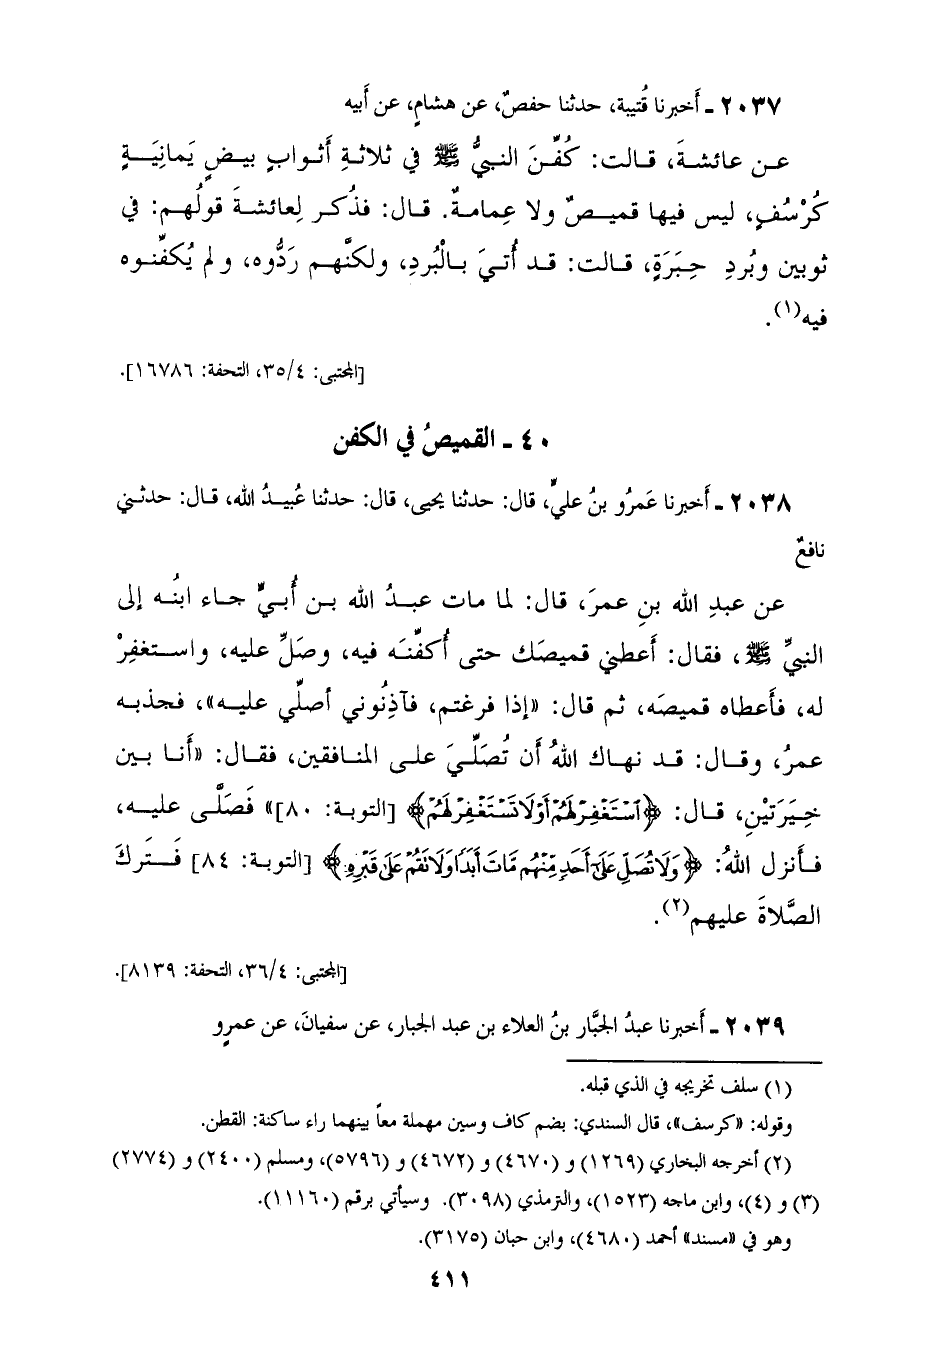 ٢٠٣٧ ـ أَخبرنا قُتيبة، حدثنا حفصٌ، عن هشامٍ، عن أَبيه
عـن عائشـةَ، قـالت: كُفِّنَ النبيُّ ﷺ في ثلاثةِ أَثوابٍ بيـضٍ يَمانِيَـةٍ
كُرْسُفٍ، ليس فيها قميـصٌ ولا عِمامـةٌ. قـال: فذُكـر لِعائشـةَ قولُهـم: في
ثوبين وبُردِ حِبَرَةٍ، قـالت: قـد أُتيَ بـالْبُردِ، ولكنَّهـم رَدُّوه، و لم يُكفِّنـوه
فيه(١).
[المجتبى: ٣٥/٤، التحفة: ١٦٧٨٦].
٤٠ ـ القميصُ في الكفن
٢٠٣٨ ـ أَخبرنا عَمرُو بنُ عليٍّ، قال: حدثنا يحيى، قال: حدثنا عُبيـدُ الله، قـال: حدثـني
نافعٌ
عن عبدِ الله بنِ عمرَ، قال: لما مات عبـدُ الله بـن أُبـيٍّ جـاء ابنُـه إلى
النبيِّ ﷺ، فقال: أَعطني قميصَك حتى أُكفِّنَه فيه، وصَلِّ عليه، واسـتغفِرْ
له، فأَعطاه قميصَه، ثم قال: «إذا فرغتم، فآذِنُوني أُصلِّي عليـه»، فجذبـه
عمرُ، وقـال: قـد نهـاك اللهُ أن تُصَلِّـيَ علـى المنـافقين، فقـال: «أَنـا بـين
خِيَرَتَيْنِ، قـال: ﴿ٱسْتَغْفِرْ لَهُمْ أَوْ لَا تَسْتَغْفِرْ لَهُمْ﴾ [التوبـة: ٨٠]» فَصَلَّـى عليـه،
فـأنزل اللهُ: ﴿وَلَا تُصَلِّ عَلَىٰٓ أَحَدٍ مِّنْهُم مَّاتَ أَبَدًا وَلَا نَقُمْ عَلَىٰ قَبْرِهِۦ﴾ [التوبـة: ٨٤] فَـتَركَ
الصَّلاةَ عليهم(٢).
[المجتبى: ٣٦/٤، التحفة: ٨١٣٩].
٢٠٣٩ ـ أَخبرنا عبدُ الجبَّار بنُ العلاء بن عبد الجبار، عن سفيانَ، عن عمرٍو
(١) سلف تخريجه في الذي قبله.
وقوله: «كرسف»، قال السندي: بضم كاف وسين مهملة معاً بينهما راء ساكنة: القطن.
(٢) أخرجه البخاري (١٢٦٩) و (٤٦٧٠) و (٤٦٧٢) و (٥٧٩٦)، ومسلم (٢٤٠٠) و (٢٧٧٤)
(٣) و (٤)، وابن ماجه (١٥٢٣)، والترمذي (٣٠٩٨). وسيأتي برقم (١١١٦٠).
وهو في «مسند» أحمد (٤٦٨٠)، وابن حبان (٣١٧٥).
٤١١